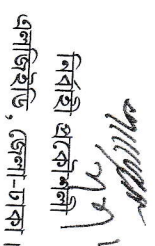 নির্বাহী প্রকৌশলী
এলজিইডি, জেলা-ঢাকা।